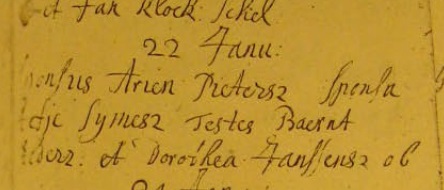 et Jan Klock Jekel
22 Janu:
sponsus Arien Pietersz Sponsa
Symesz Testes Baernt
et Dorothea Janssensz ob